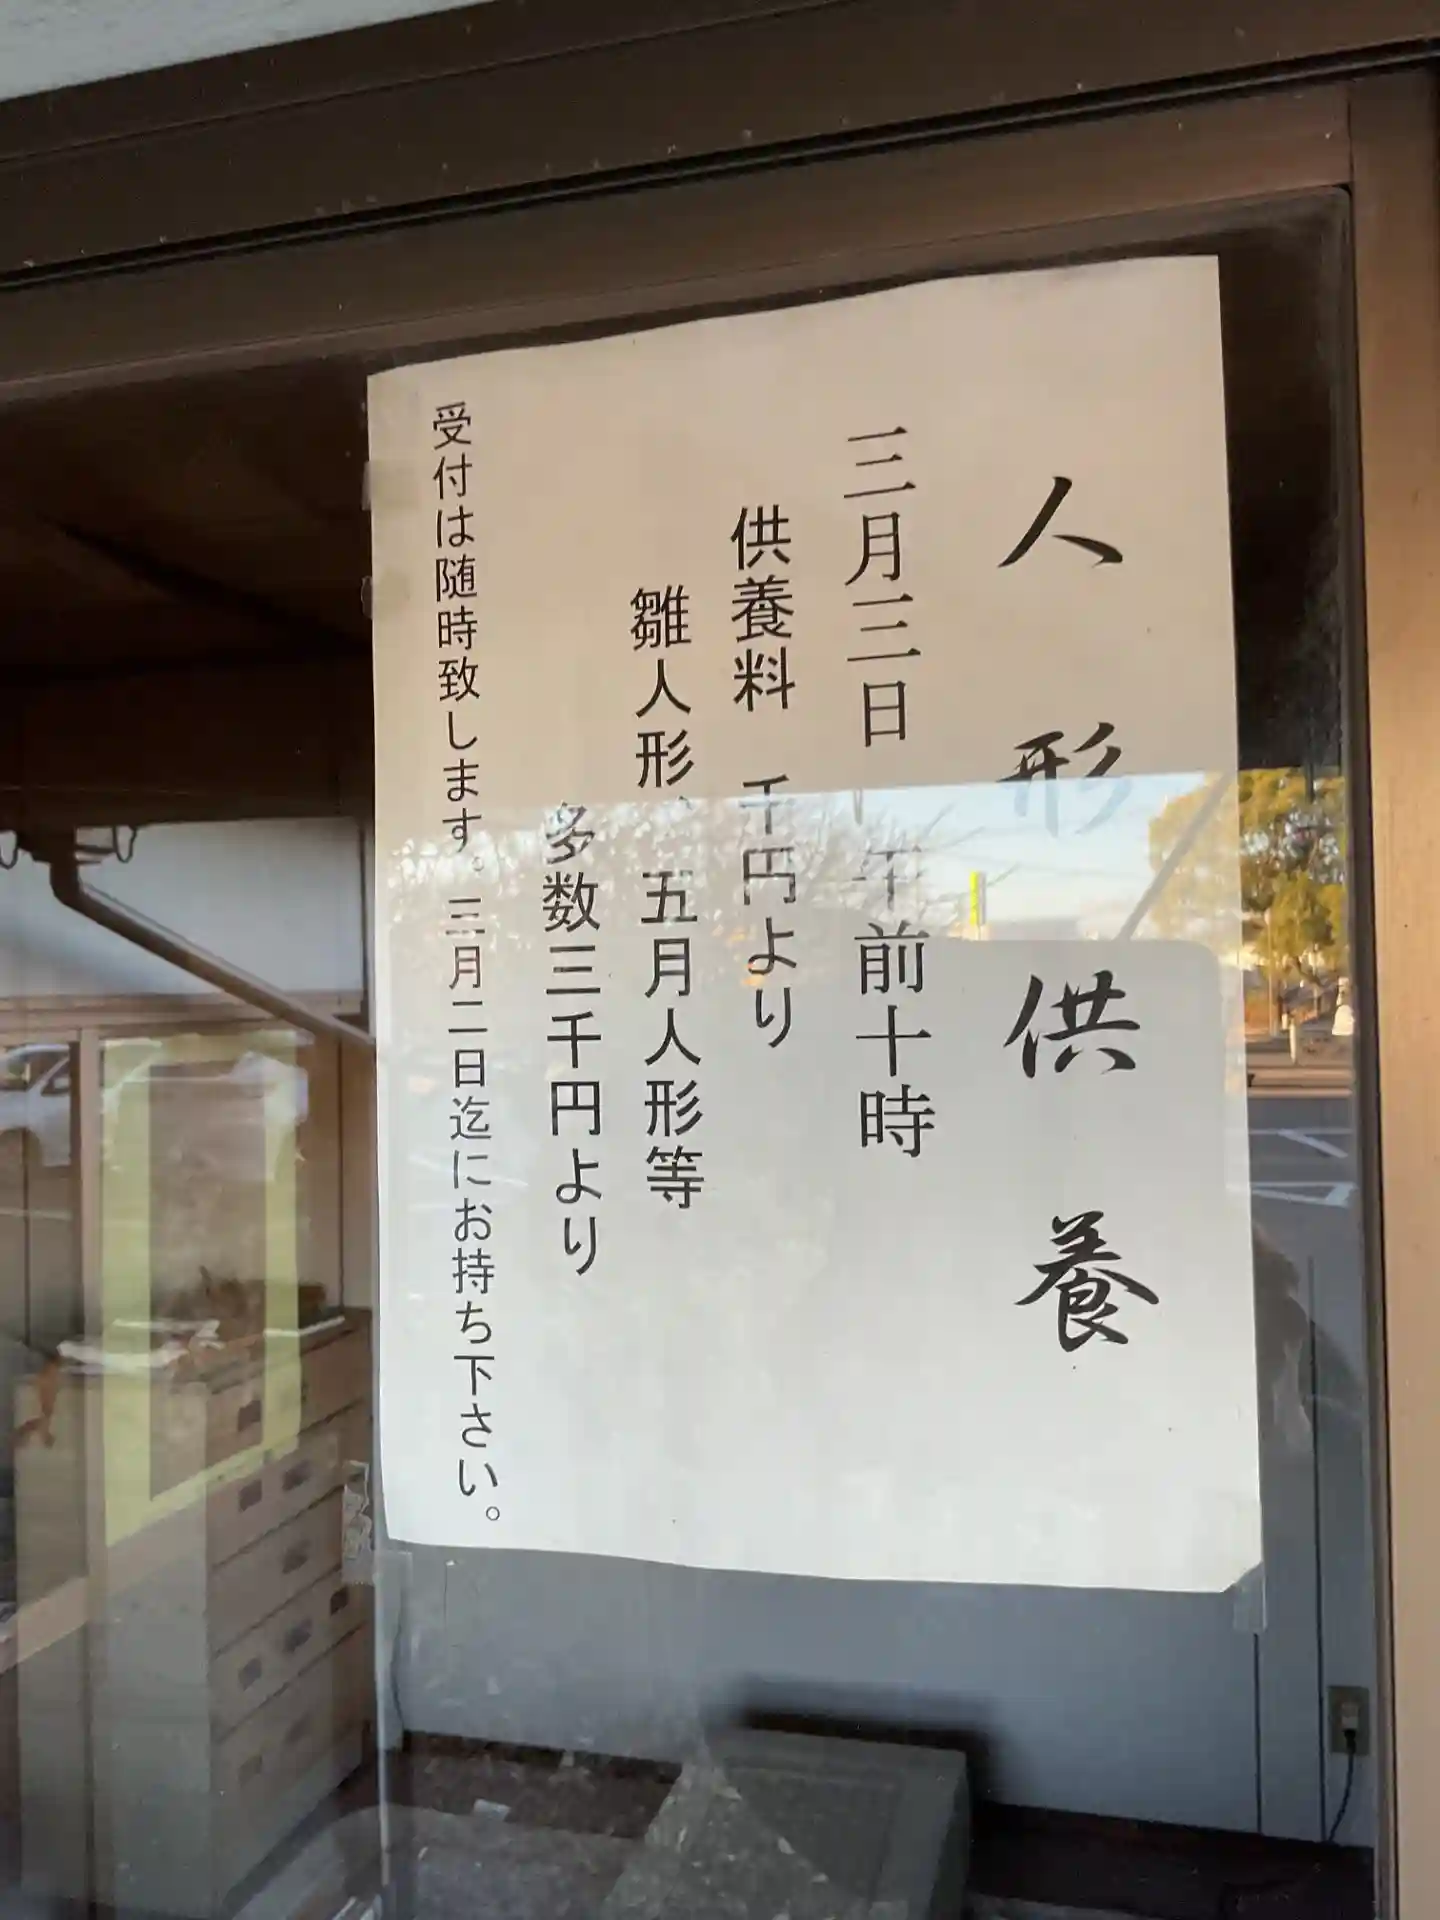 人形供養
三月三日 午前十時
供養料 千円より
雛人形、五月人形等
多数三千円より
受付は随時致します。三月二日迄にお持ち下さい。